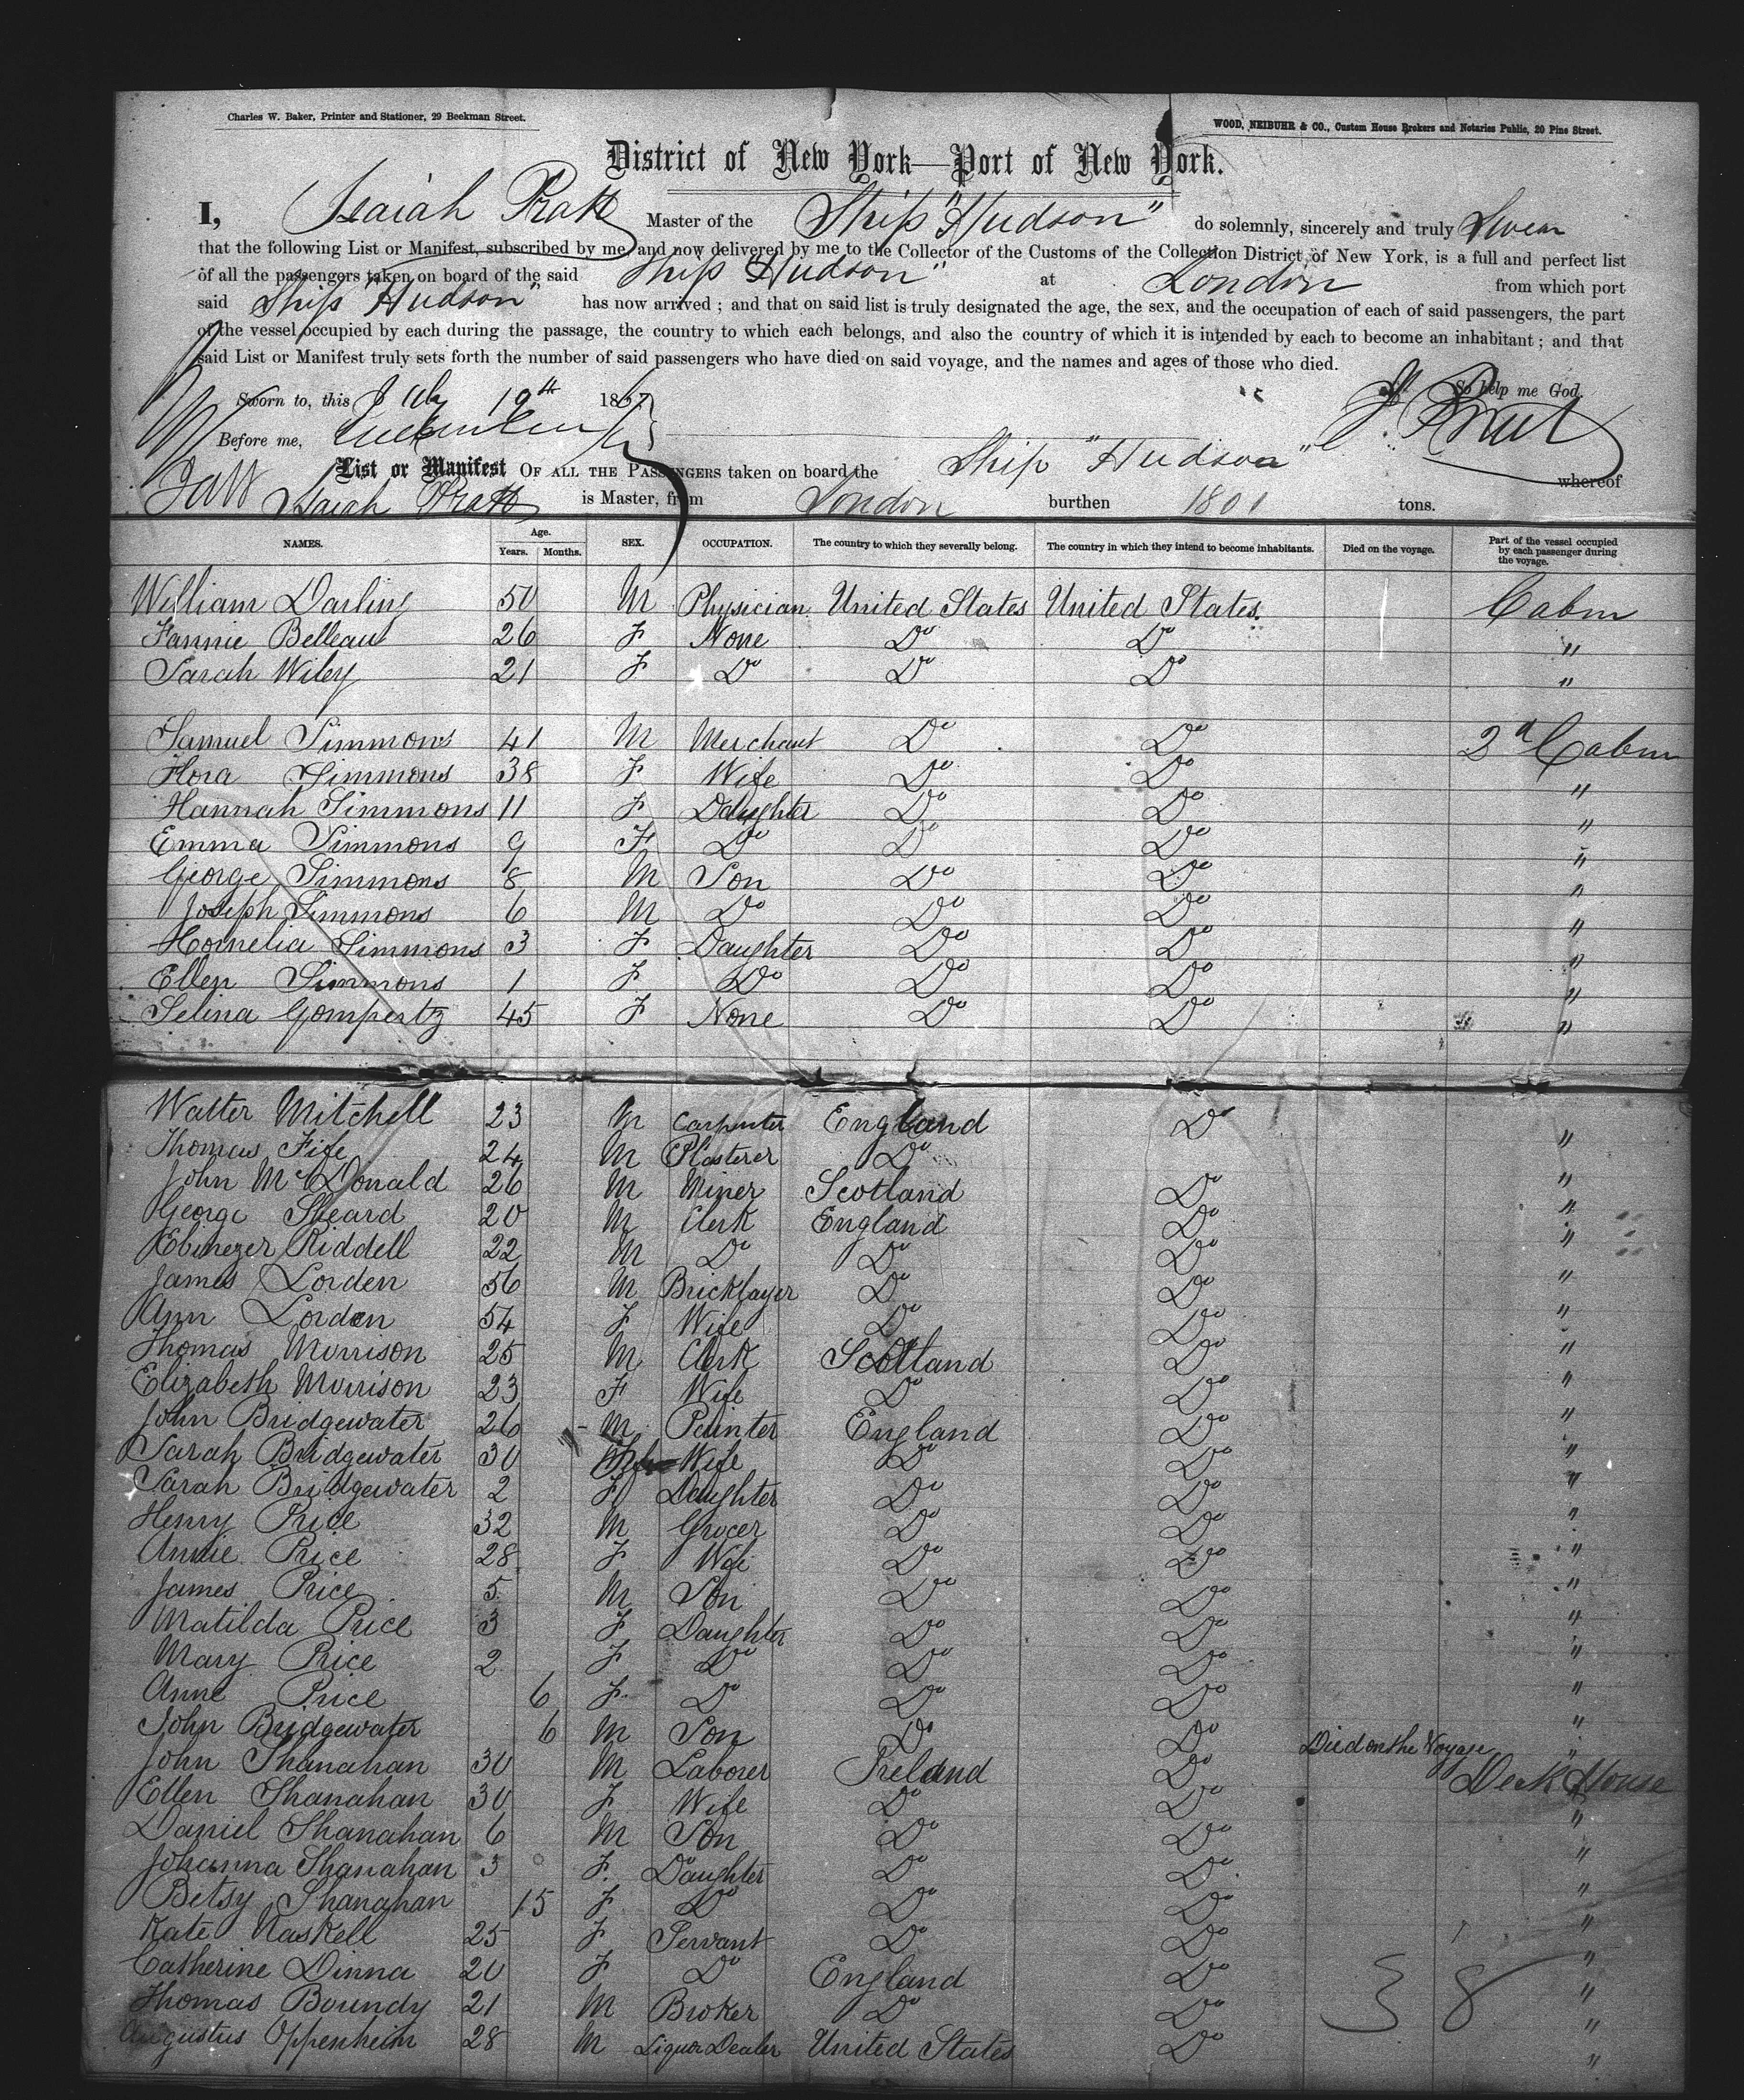 Charles W. Baker, Printer and Stationer, 29 Beekman Street.
WOOD, NEIBUHR & CO., Custom House Brokers and Notaries Public, 20 Pine Street.
District of New York—Port of New York.
I, Isaiah Pratt Master of the Ship "Hudson" do solemnly, sincerely and truly Swear
that the following List or Manifest, subscribed by me, and now delivered by me to the Collector of the Customs of the Collection District of New York, is a full and perfect list
of all the passengers taken on board of the said Ship "Hudson" at London from which port
said Ship "Hudson" has now arrived; and that on said list is truly designated the age, the sex, and the occupation of each of said passengers, the part
of the vessel occupied by each during the passage, the country to which each belongs, and also the country of which it is intended by each to become an inhabitant; and that
said List or Manifest truly sets forth the number of said passengers who have died on said voyage, and the names and ages of those who died.
So help me God.
Sworn to, this July 19th 1867
Before me,
I. Pratt
List or Manifest OF ALL THE PASSENGERS taken on board the Ship "Hudson" whereof
Isaiah Pratt is Master, from London burthen 1801 tons.
NAMES. Age. Years. Months. SEX. OCCUPATION. The country to which they severally belong. The country in which they intend to become inhabitants. Died on the voyage. Part of the vessel occupied by each passenger during the voyage.
William Darling 50 M Physician United States United States. Cabin
Fannie Belleau 26 F None Do Do "
Sarah Wiley 21 F Do Do Do "
Samuel Simmons 41 M Merchant Do Do 2d Cabin
Flora Simmons 38 F Wife Do Do "
Hannah Simmons 11 F Daughter Do Do "
Emma Simmons 9 F Do Do Do "
George Simmons 8 M Son Do Do "
Joseph Simmons 6 M Do Do Do "
Hornelia Simmons 3 F Daughter Do Do "
Ellen Simmons 1 F Do Do Do "
Selina Gompertz 45 F None Do Do "
Walter Mitchell 23 M Carpenter England Do "
Thomas Fife 24 M Plasterer Do
John McDonald 26 M Miner Scotland Do "
George Sheard 20 M Clerk England Do "
Ebinezer Riddell 22 M Do Do Do "
James Lorden 56 M Bricklayer Do Do "
Ann Lorden 54 F Wife Do Do "
Thomas Morrison 25 M Clerk Scotland Do "
Elizabeth Morrison 23 F Wife Do Do "
John Bridgewater 26 M Painter England Do "
Sarah Bridgewater 30 Wife Do Do "
Sarah Bridgewater 2 F Daughter Do Do "
Henry Price 32 M Grocer Do Do "
Annie Price 28 F Wife Do Do "
James Price 5 M Son Do Do "
Matilda Price 3 F Daughter Do Do "
Mary Price 2 F Do Do Do "
Anne Price 6 F Do Do Do "
John Bridgewater 6 M Son Do Do Died on the Voyage "
John Shanahan 30 M Laborer Ireland Do Deck House
Ellen Shanahan 30 F Wife Do Do "
Daniel Shanahan 6 M Son Do Do "
Johanna Shanahan 3 F Daughter Do Do "
Betsy Shanahan 15 F Do Do Do "
Kate Haskell 25 F Servant Do Do "
Catherine Dinna 20 F Do England Do "
Thomas Boundy 21 M Broker Do Do "
38
Augustus Oppenheim 28 M Liquor Dealer United States Do "